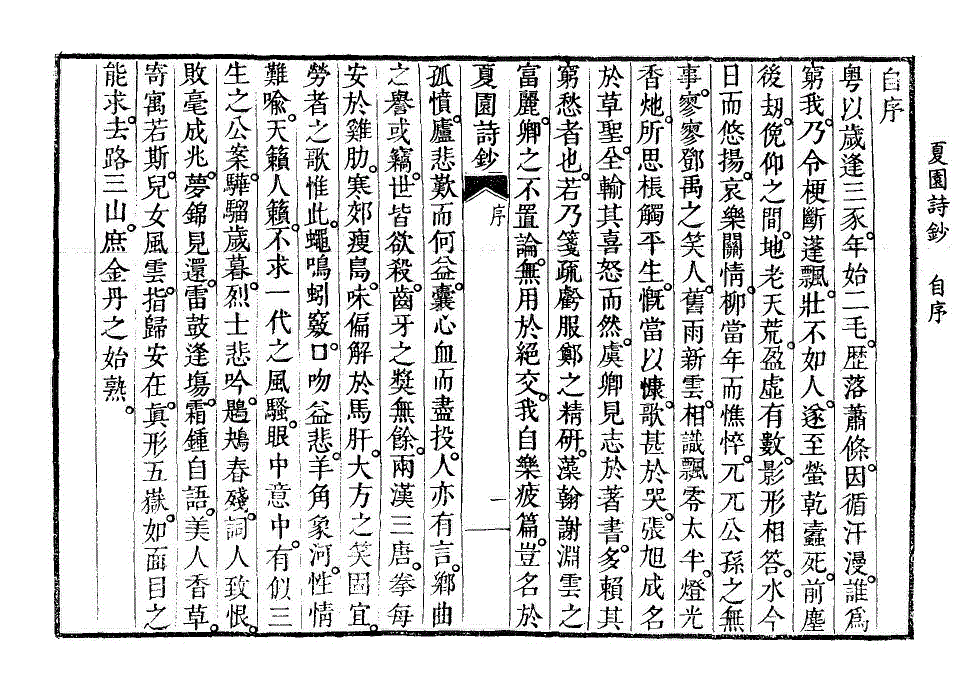 夏園詩鈔 自序
自序
粤以歲逢三豕。年始二毛。歴落蕭條。因循汗漫。誰爲
窮我。乃令梗斷蓬飄。壯不如人。遂至螢乾蠹死。前塵
後刼。俛仰之間。地老天荒。盈虛有數。影形相答。水今
日而悠揚。哀樂關情。柳當年而憔悴。兀兀公孫之無
事。寥寥鄧禹之笑人。舊雨新雲。相識飄零太半。燈光
香灺。所思棖觸平生。慨當以慷。歌甚於哭。張旭成名
於草聖。全輸其喜怒而然。虞卿見志於著書。多賴其
窮愁者也。若乃箋疏虧服鄭之精研。藻翰謝淵雲之
富麗。卿之不置論。無用於絕交。我自樂疲篇。豈名於
夏園詩鈔 序 一
孤憤。廬悲歎而何益。囊心血而盡投。人亦有言。鄉曲
之譽或竊。世皆欲殺。齒牙之奬無餘。兩漢三唐。拳每
安於雞肋。寒郊瘦島。味偏解於馬肝。大方之笑固宜。
勞者之歌惟此。蠅鳴蚓竅。口吻益悲。羊角象河。性情
難喻。天籟人籟。不求一代之風騷。眼中意中。有似三
生之公案。驊騮歲暮。烈士悲吟。鶗鴂春殘。詞人致恨。
敗毫成兆。夢錦見還。雷鼓逢塲。霜鍾自語。美人香草。
寄寓若斯。兒女風雲。指歸安在。眞形五嶽。如面目之
能求。去路三山。庶金丹之始熟。